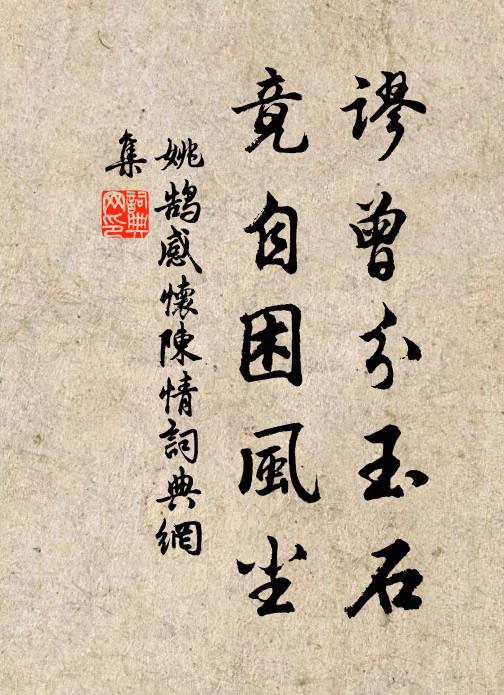 謬曾分玉石
竟自困風尘
姚鵠感懷陳情詞典網
集
詞典
网印